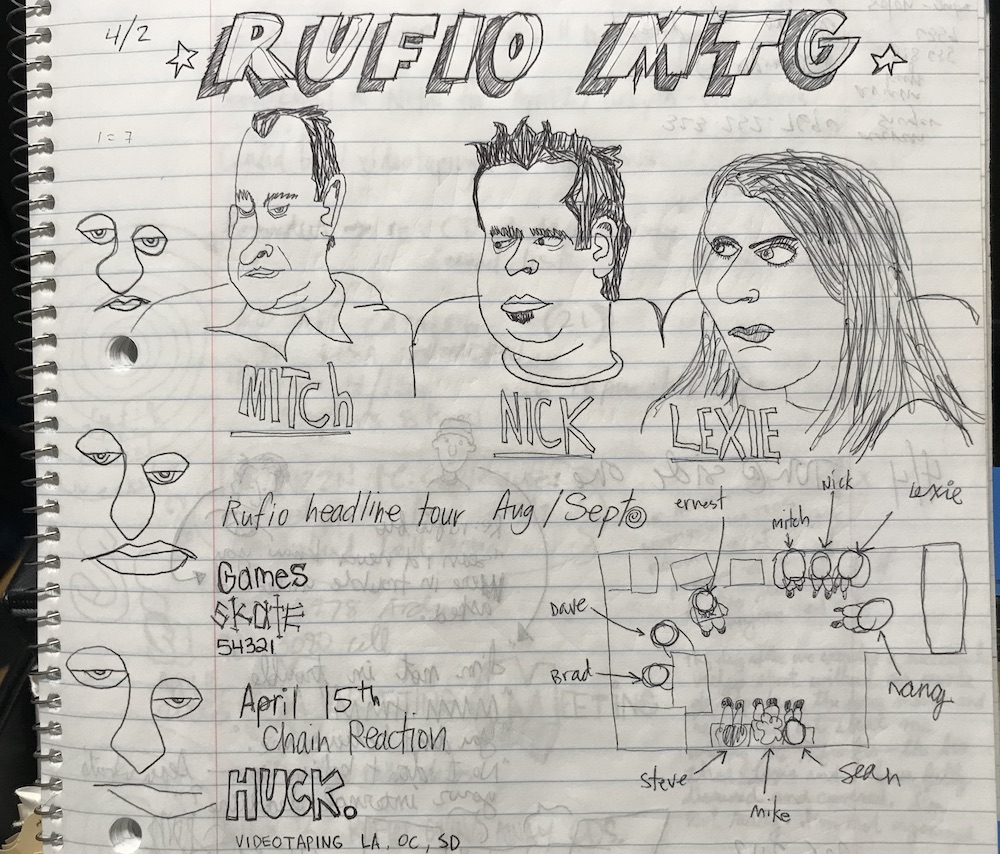 4/2
RUFIO MTG
1=7
MITCh
NICK
LEXIE
Rufio headline tour Aug/Sept
ernest
Nick
Lexie
mitch
Games
SKATE
54321
Dave
Brad
nang
April 15th
Chain Reaction
steve
mike
sean
HUCK.
VIDEOTAPING LA, OC, SD